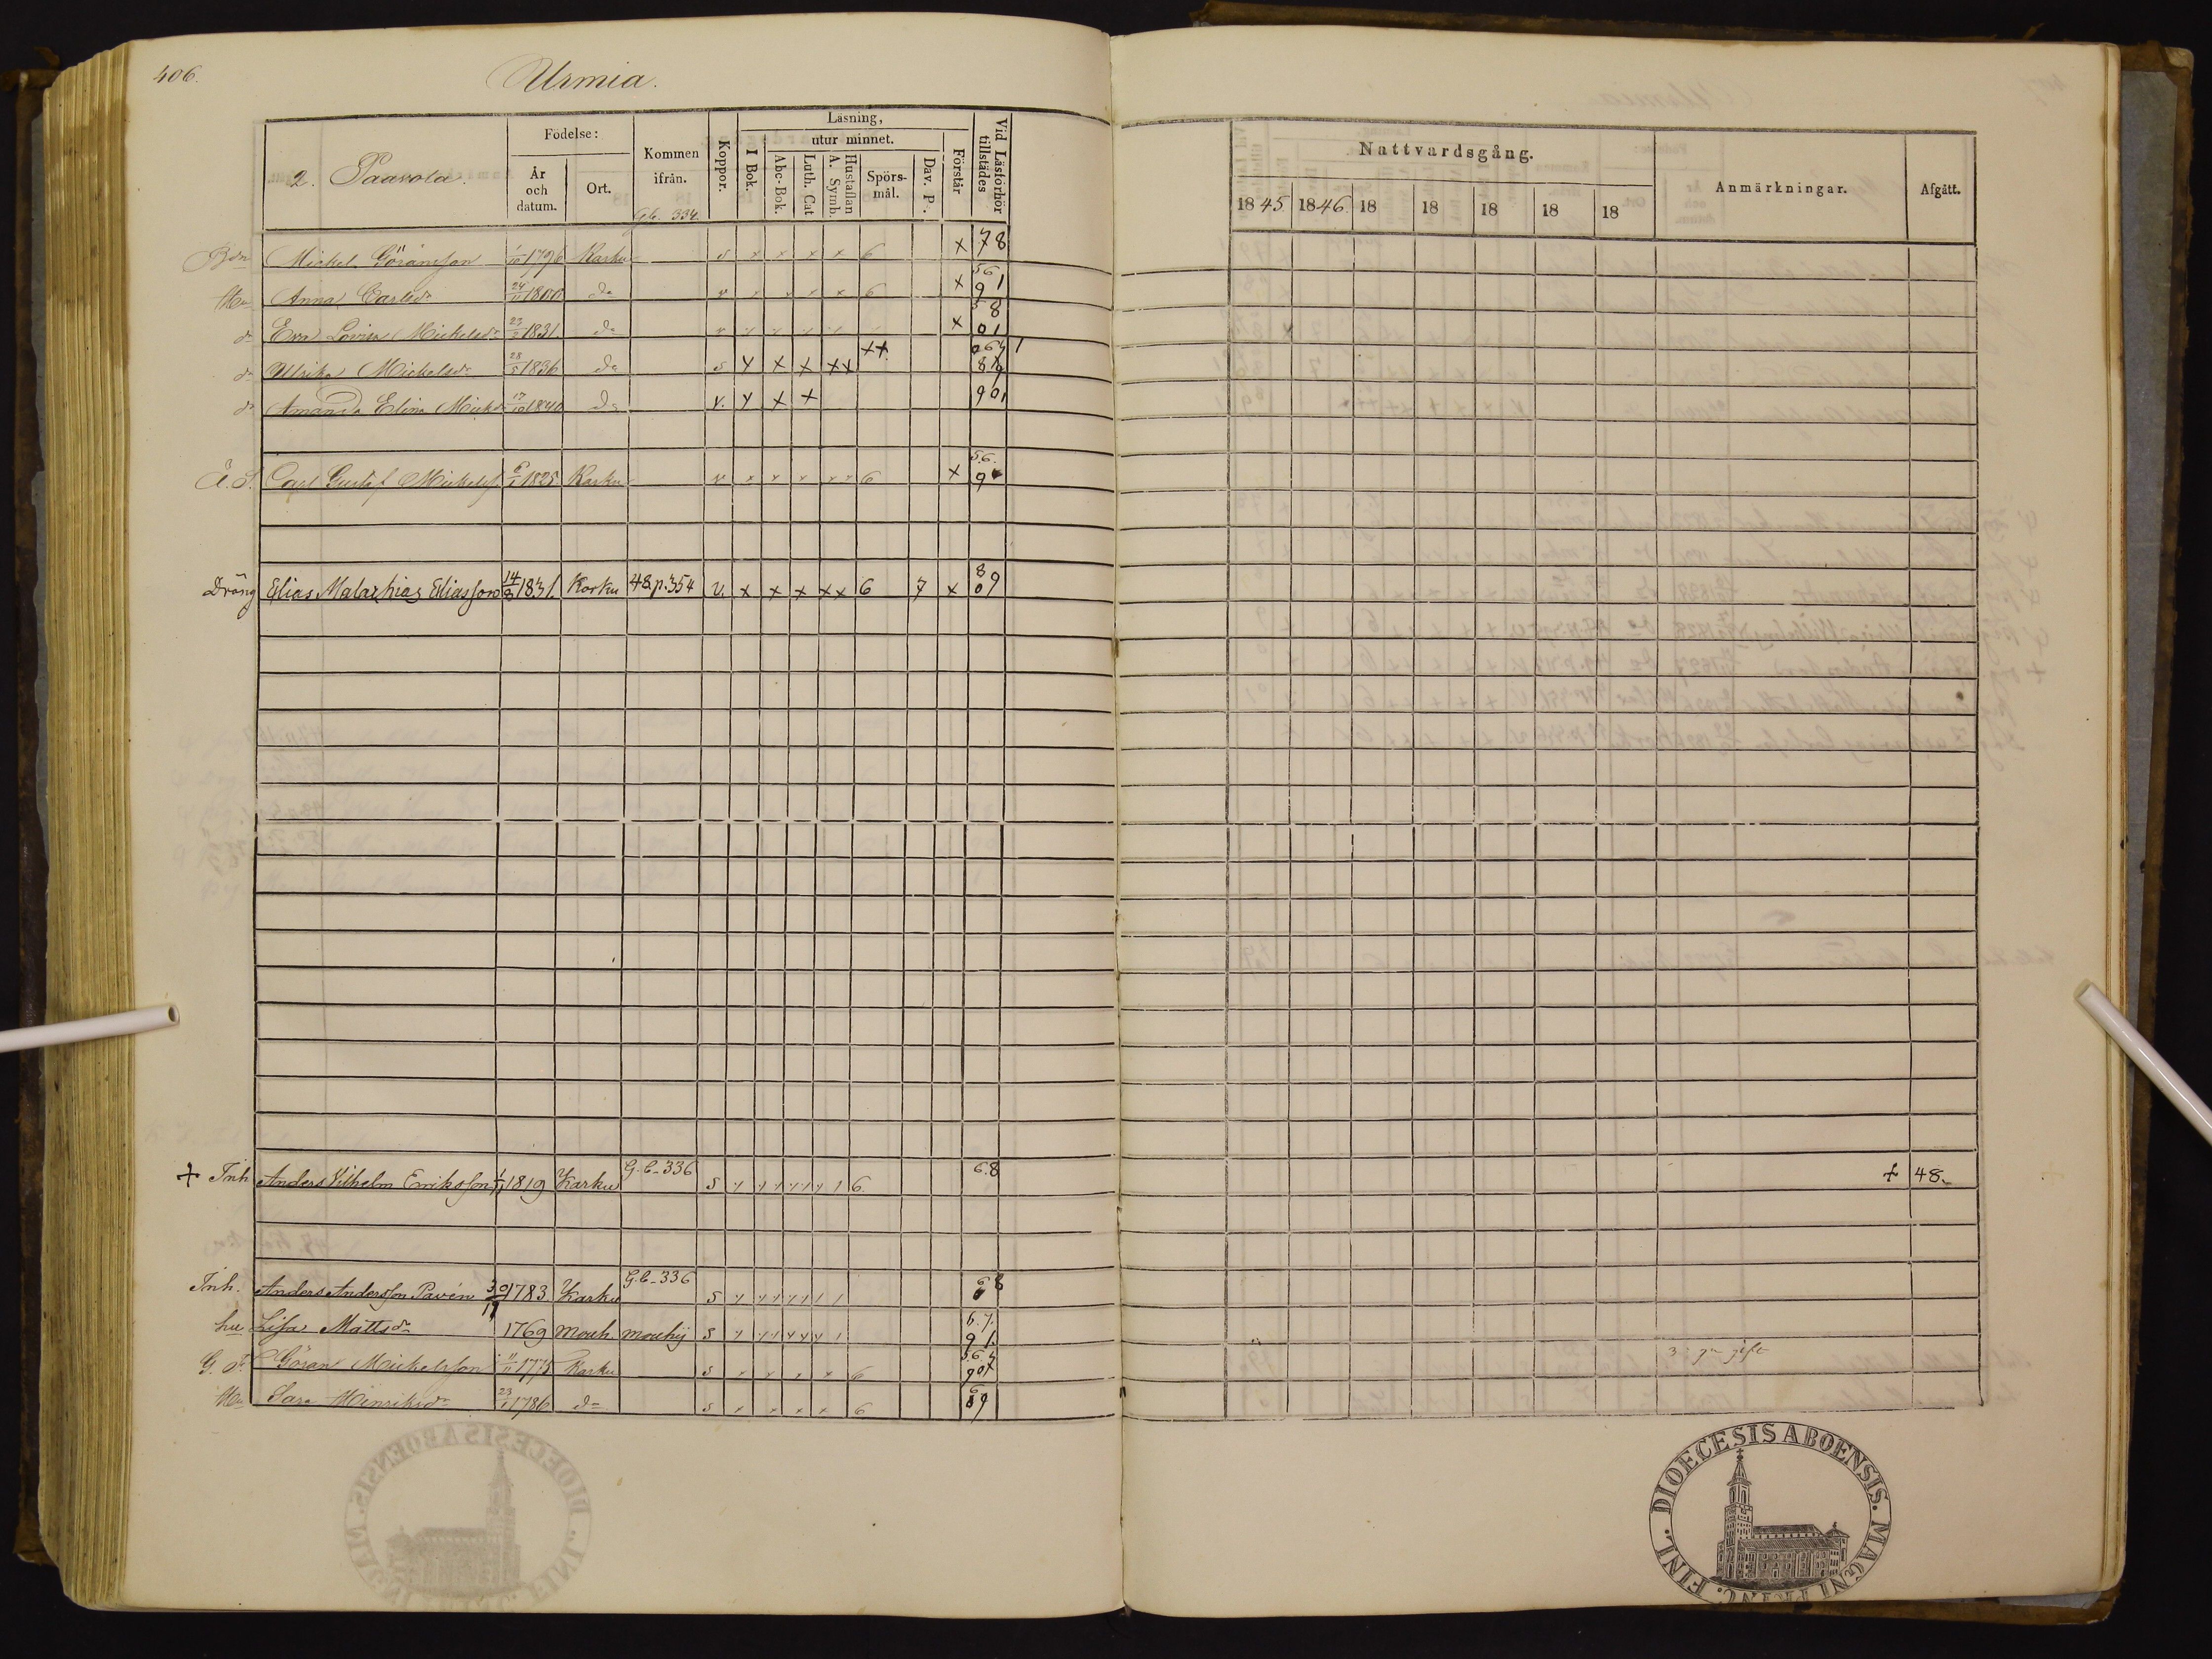 406.
Urmia.
2. Paavola.
Födelse:
År och datum.
Ort.
Kommen ifrån.
Glb. 334.
Koppor.
Läsning,
I Bok.
utur minnet.
Abc-Bok.
Luth. Cat
Hustaflan A. Symb.
Spörsmål.
Dav. P.
Förstår
Vid Läsförhör tillstädes
Nattvardsgång.
1845. 1846. 18 18 18 18 18
Anmärkningar.
Afgått.
Bdn Mickel Göransson 1/10 1796 Karku s x x x x 6 x 78
Hu Anna Carlsdr 24/11 1800 do v x x x x 6 x 56 91
dr Eva Lovisa Mickelsdr 23/2 1831. do x 58 01
dr Ulrika Mickelsdr 28/5 1836 do s x x x xx xx
dr Amanda Elina Mickdr 17/10 1840 do v. x x x 901
Å.S. Carl Gustaf Mickelss 6/1 1825 Karku v x x x xx 6 x 56. 9
Dräng Elias Malachias Eliasson 14/8 1831. Karku 48.p.354 v. x x x xx 6 7 x 89 0
+ Inh Anders Vilhelm Eriksson 1/11 1819 Karku G.b-336 s 6. 68 + 48.
Inh. Anders Andersson Pavén 30/11 1783. Karku G.b-336 s 68
hu Lisa Mattsdr 1769 Mouh. mouhij s 6.7. 91.
G. F. Göran Mickelsson 11/11 1775 Karku s x x x x 6 3: gn gift
Hu Sara Henriksdr 23/1 1786 do s x x x x 6 6 89
FINL. DIOECESIS ABOENSIS. MAGNI PRINC.